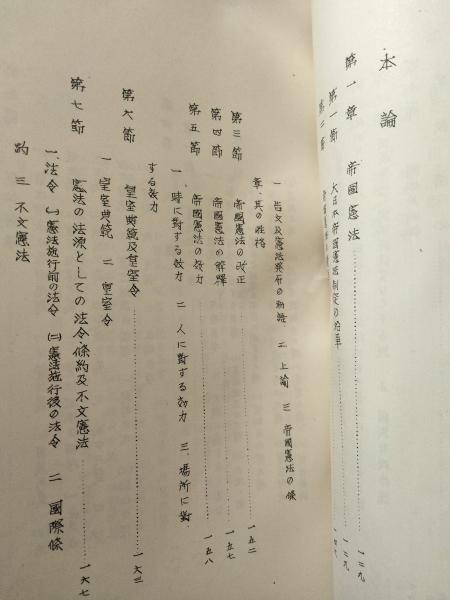 本論
第一章 帝國憲法 一二九
第一節 大日本帝國憲法制定の沿革 一二九
第二節
一 告文及憲法発布の勅語 二 上諭 三 帝國憲法の條
章、其の性格
第三節 帝國憲法の改正 一五二
第四節 帝國憲法の解釋 一五七
第五節 帝國憲法の效力 一五八
一、時に対する效力 二 人に對する效力 三、場所に對
する效力
第六節 皇室典範及皇室令 一六三
一 皇室典範 二 皇室令
第七節 憲法の法源としての法令、條約及不文憲法 一六七
一、法令 ㈠憲法施行前の法令 ㈡憲法施行後の法令 二 國際條
約 三 不文憲法